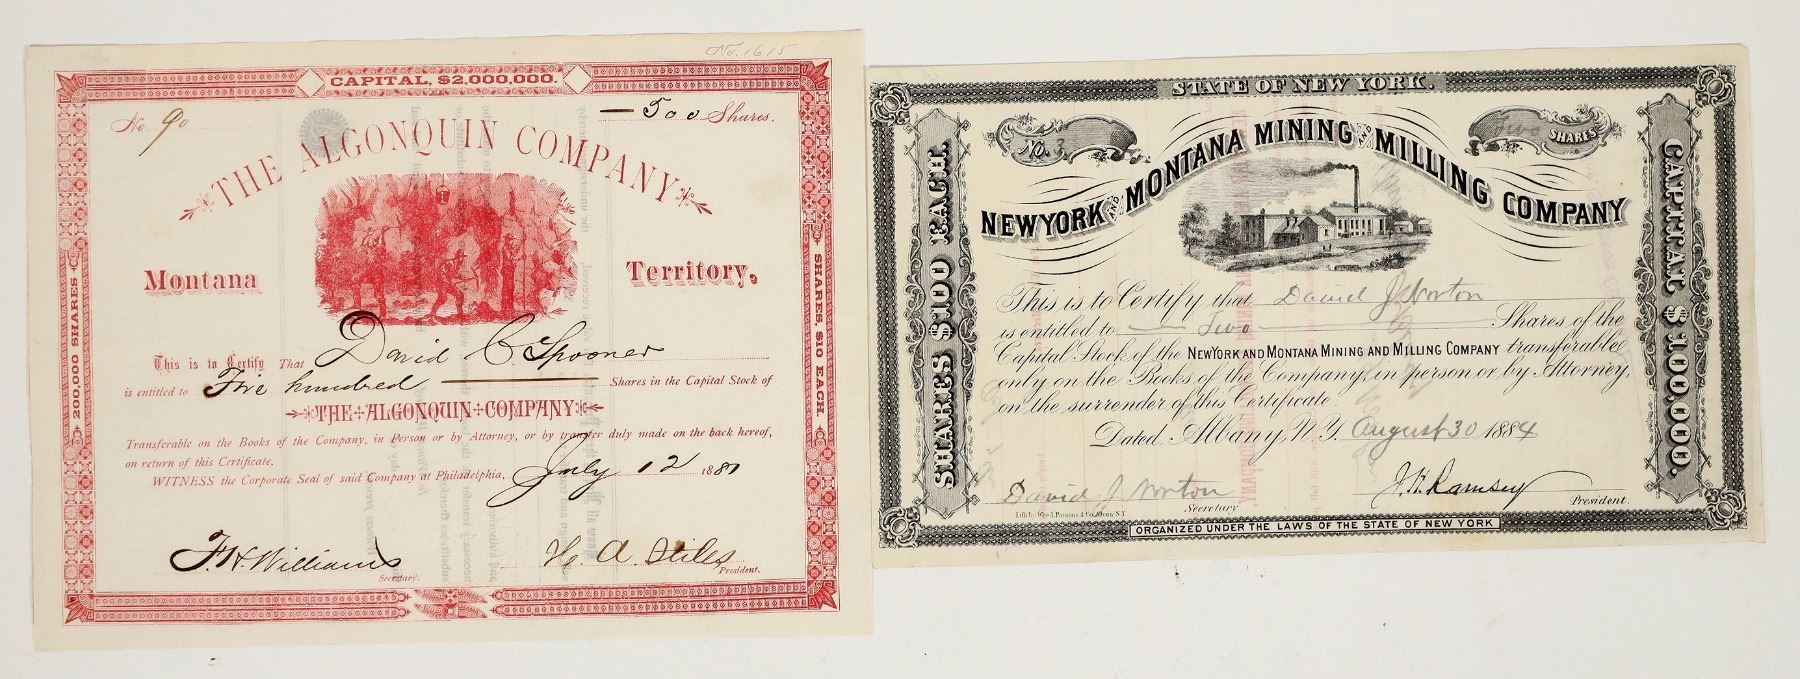 No. 1615
CAPITAL, $2,000,000.
No 90
500 Shares.
THE ALGONQUIN COMPANY
Montana Territory,
200,000 SHARES
SHARES, $10 EACH.
This is to Certify That David C. Spooner
is entitled to Five hundred Shares in the Capital Stock of
THE ALGONQUIN COMPANY
Transferable on the Books of the Company, in Person or by Attorney, or by transfer duly made on the back hereof,
on return of this Certificate.
WITNESS the Corporate Seal of said Company at Philadelphia, July 12 1881
F. W. Williams
Secretary.
H. A. Stiles
President.
STATE OF NEW YORK.
No. 3
Two SHARES
NEW YORK AND MONTANA MINING AND MILLING COMPANY
SHARES $100 EACH.
CAPITAL $100,000.
This is to Certify that David J. Norton
is entitled to Two Shares of the
Capital Stock of the NEW YORK AND MONTANA MINING AND MILLING COMPANY transferable
only on the Books of the Company, in person or by Attorney,
on the surrender of this Certificate.
Dated. Albany, N.Y. August 30 1884
David J. Norton
Secretary
J. H. Ramsey
President.
ORGANIZED UNDER THE LAWS OF THE STATE OF NEW YORK